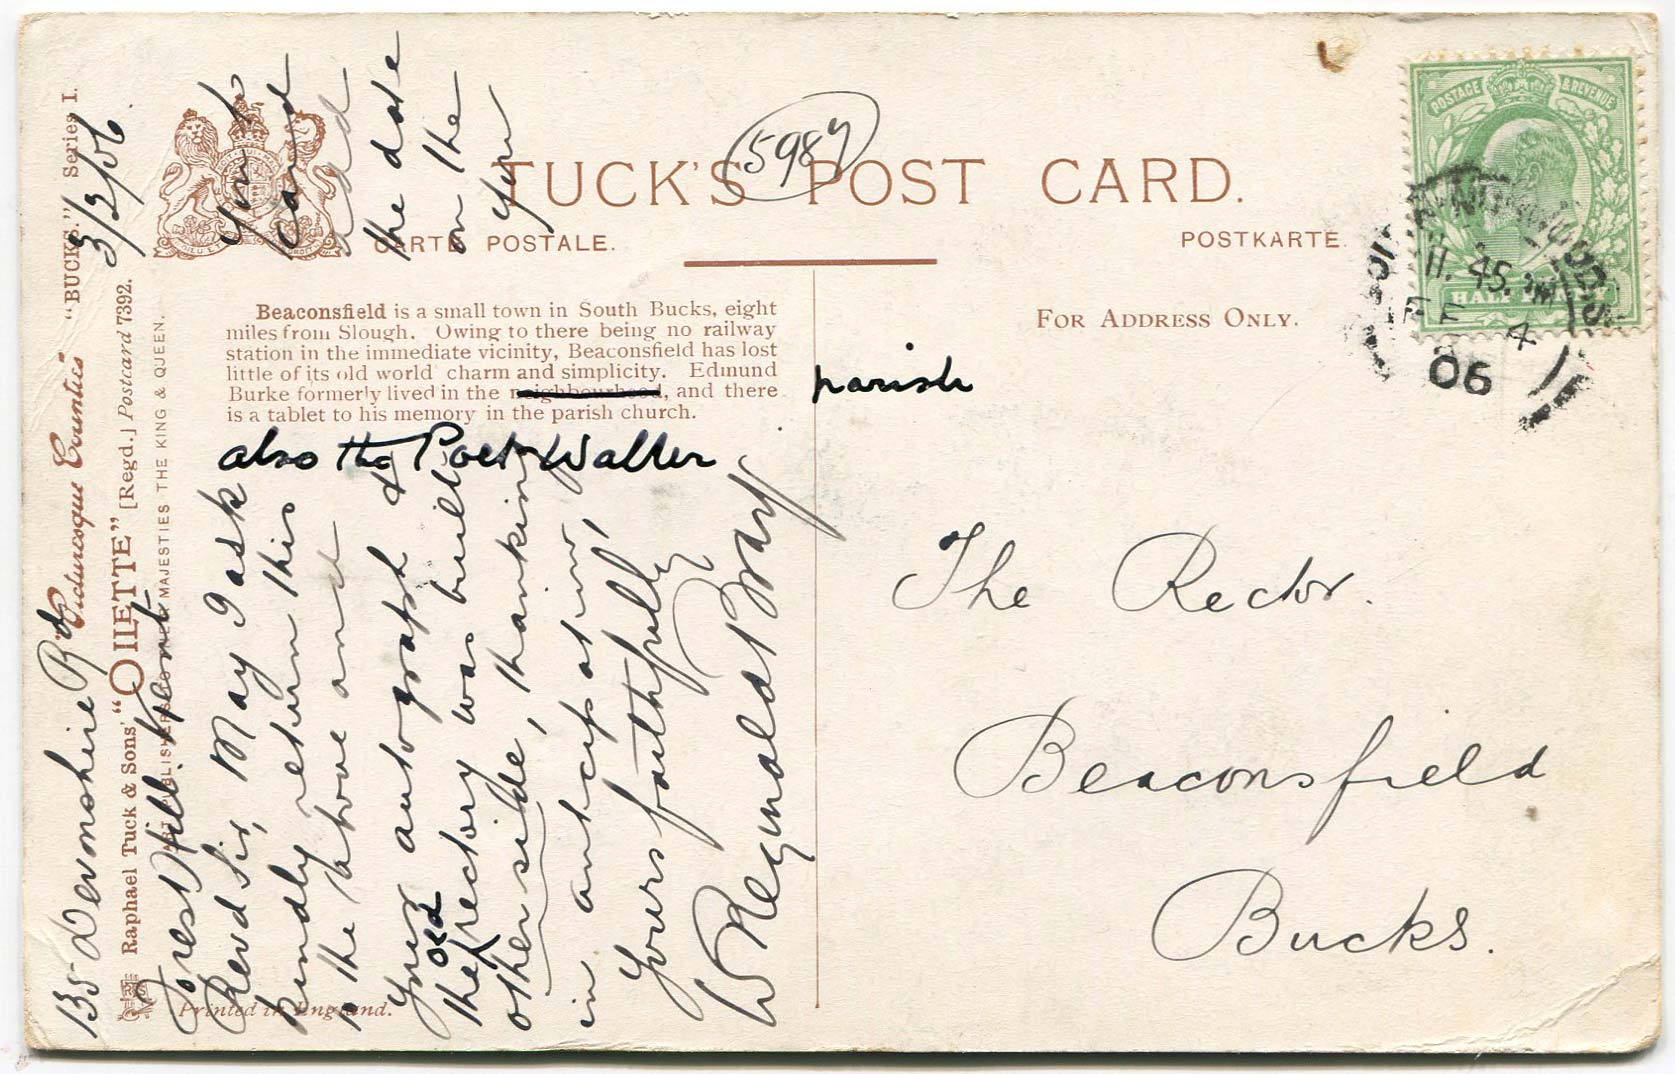 TUCK'S POST CARD.
CARTE POSTALE.
POSTKARTE.
FOR ADDRESS ONLY.
5987
POSTAGE & REVENUE
HALF PENNY
11.45 PM
FE 4
06
Beaconsfield is a small town in South Bucks, eight
miles from Slough. Owing to there being no railway
station in the immediate vicinity, Beaconsfield has lost
little of its old world charm and simplicity. Edmund
Burke formerly lived in the neighbourhood, and there
is a tablet to his memory in the parish church.
parish
also the Poet Waller
"Picturesque Counties" "BUCKS." Series I.
Raphael Tuck & Sons' "OILETTE" [Regd.] Postcard 7392.
ART PUBLISHERS TO THEIR MAJESTIES THE KING & QUEEN.
Printed in England.
135 Devonshire Rd
Forest Hill Kent
3/2/06.
Revd Sir, May I ask
you to
kindly return this
card
to the above and
add
your autograph &
the date
the old rectory was built
on the
other side, thanking
you
in anticipation,
Yours faithfully
W Reginald Bray
The Rector.
Beaconsfield
Bucks.